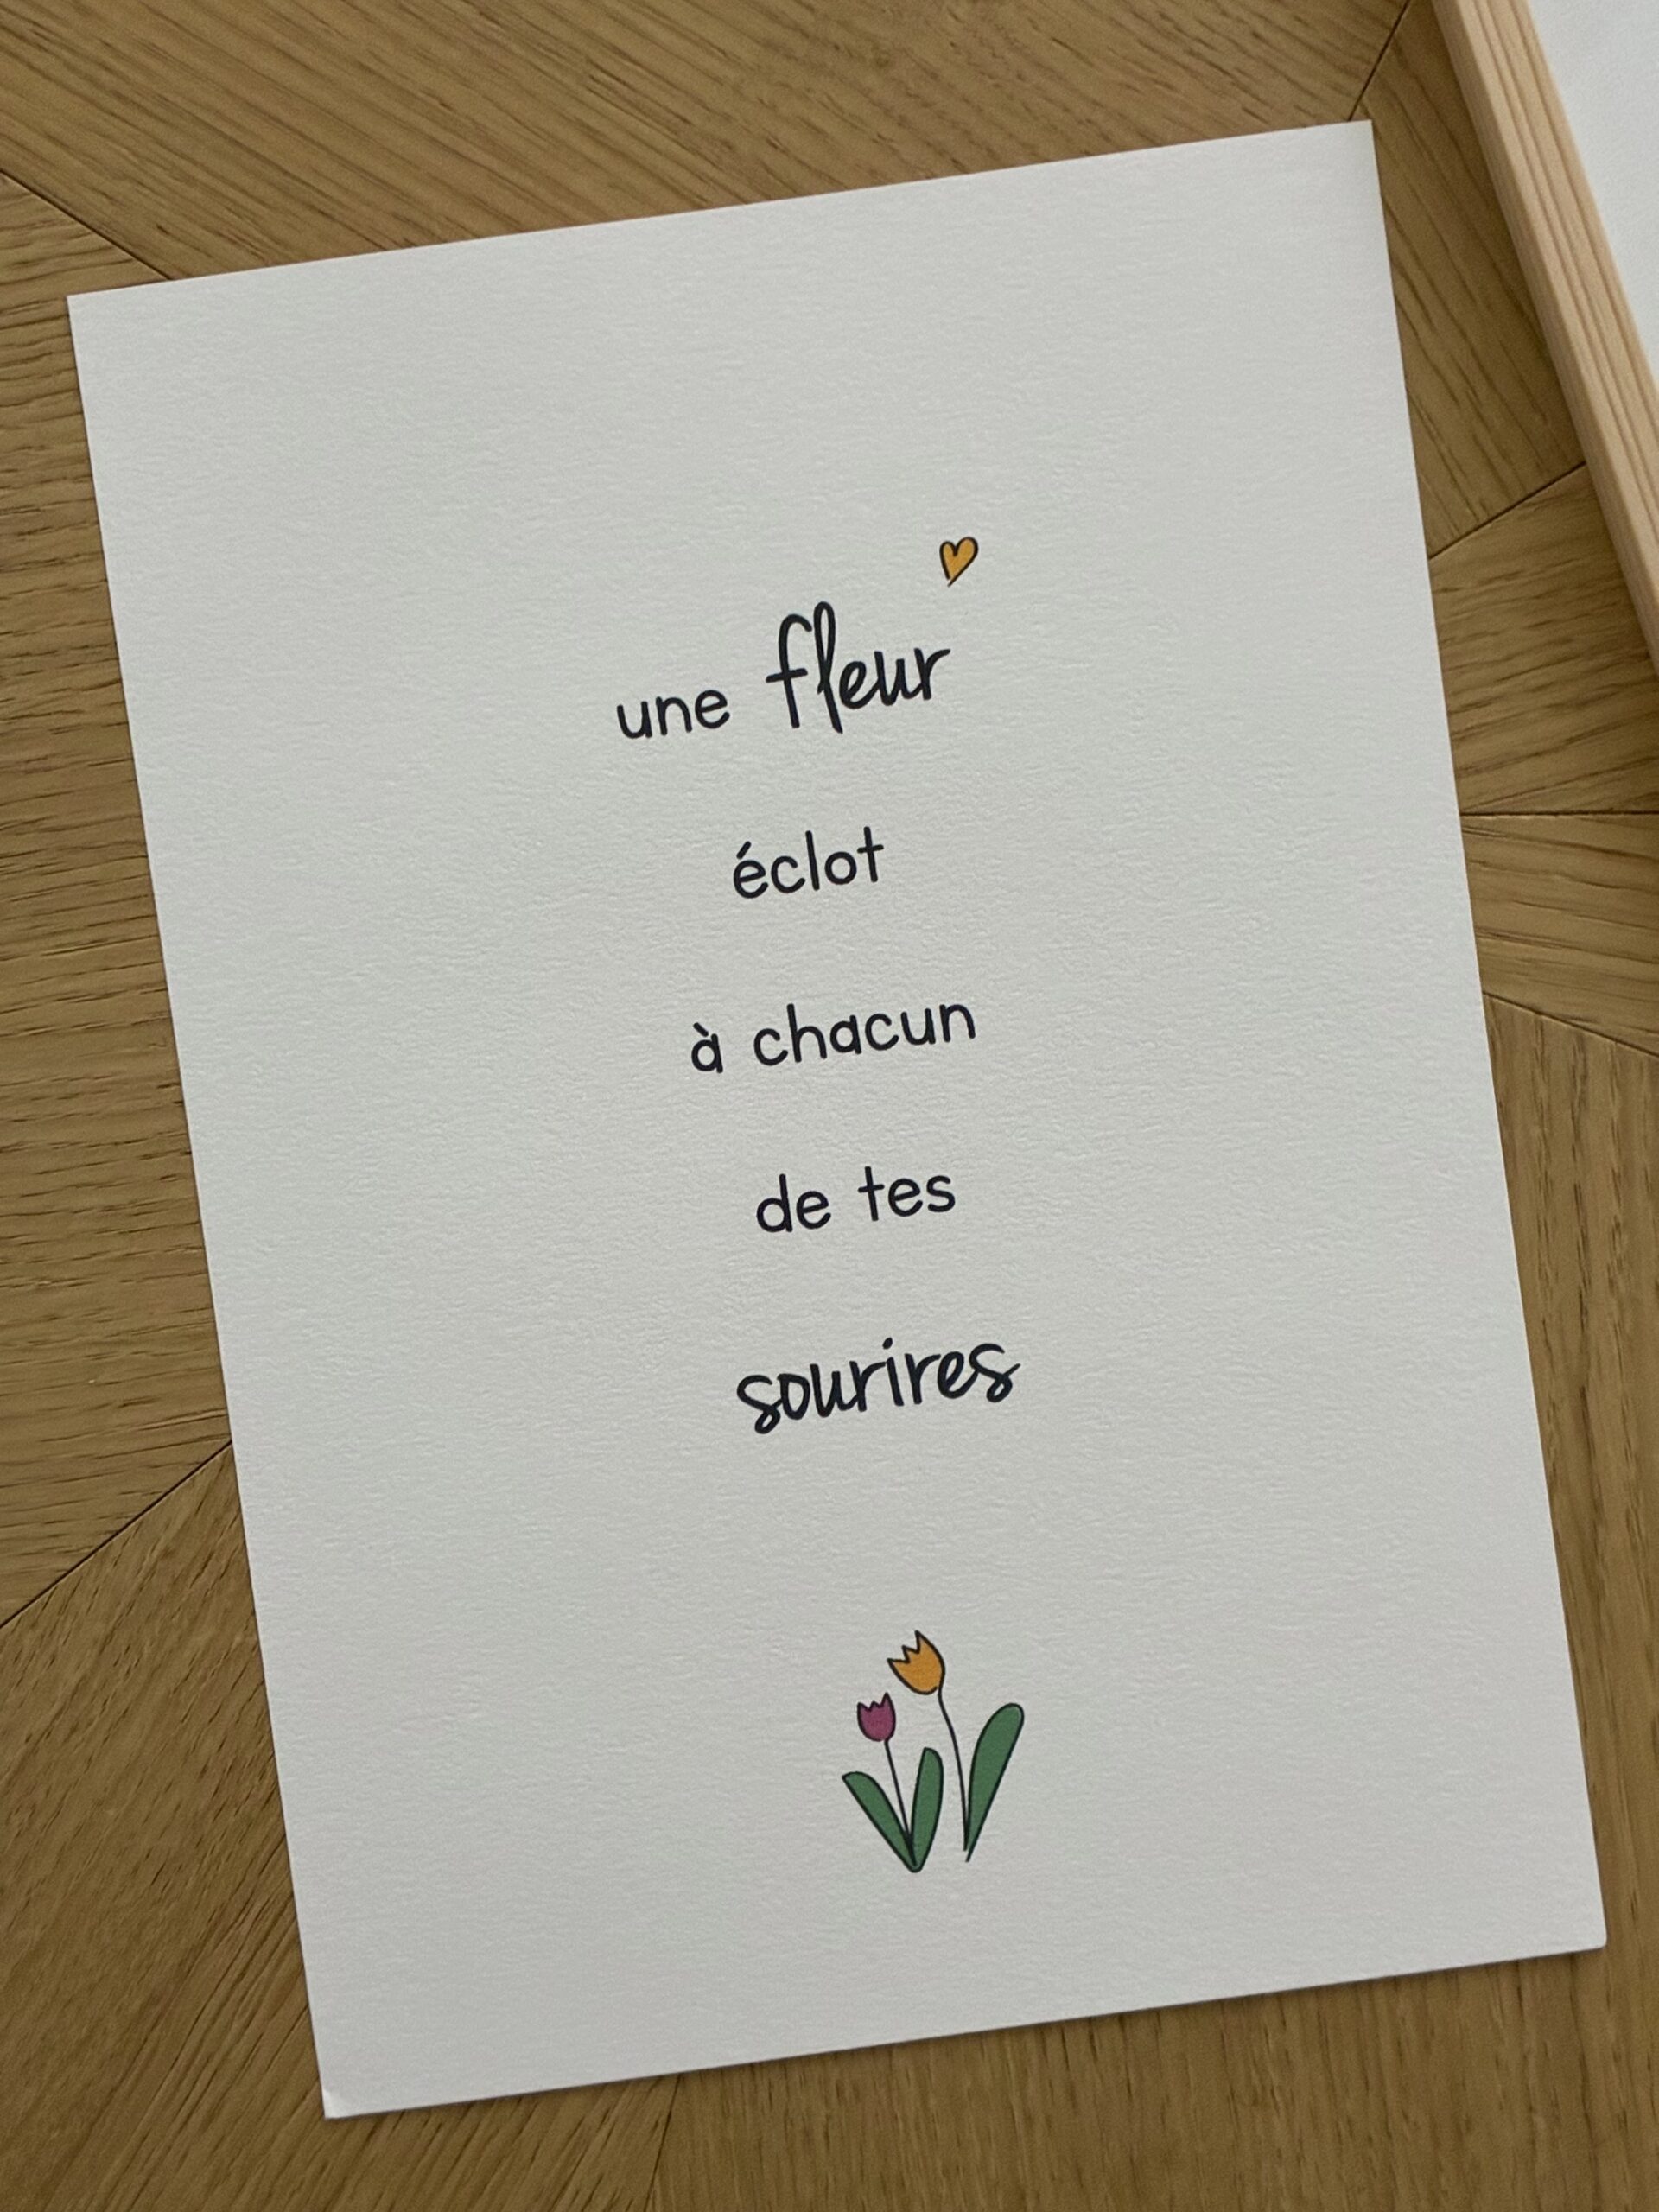 une fleur
éclot
à chacun
de tes
sourires